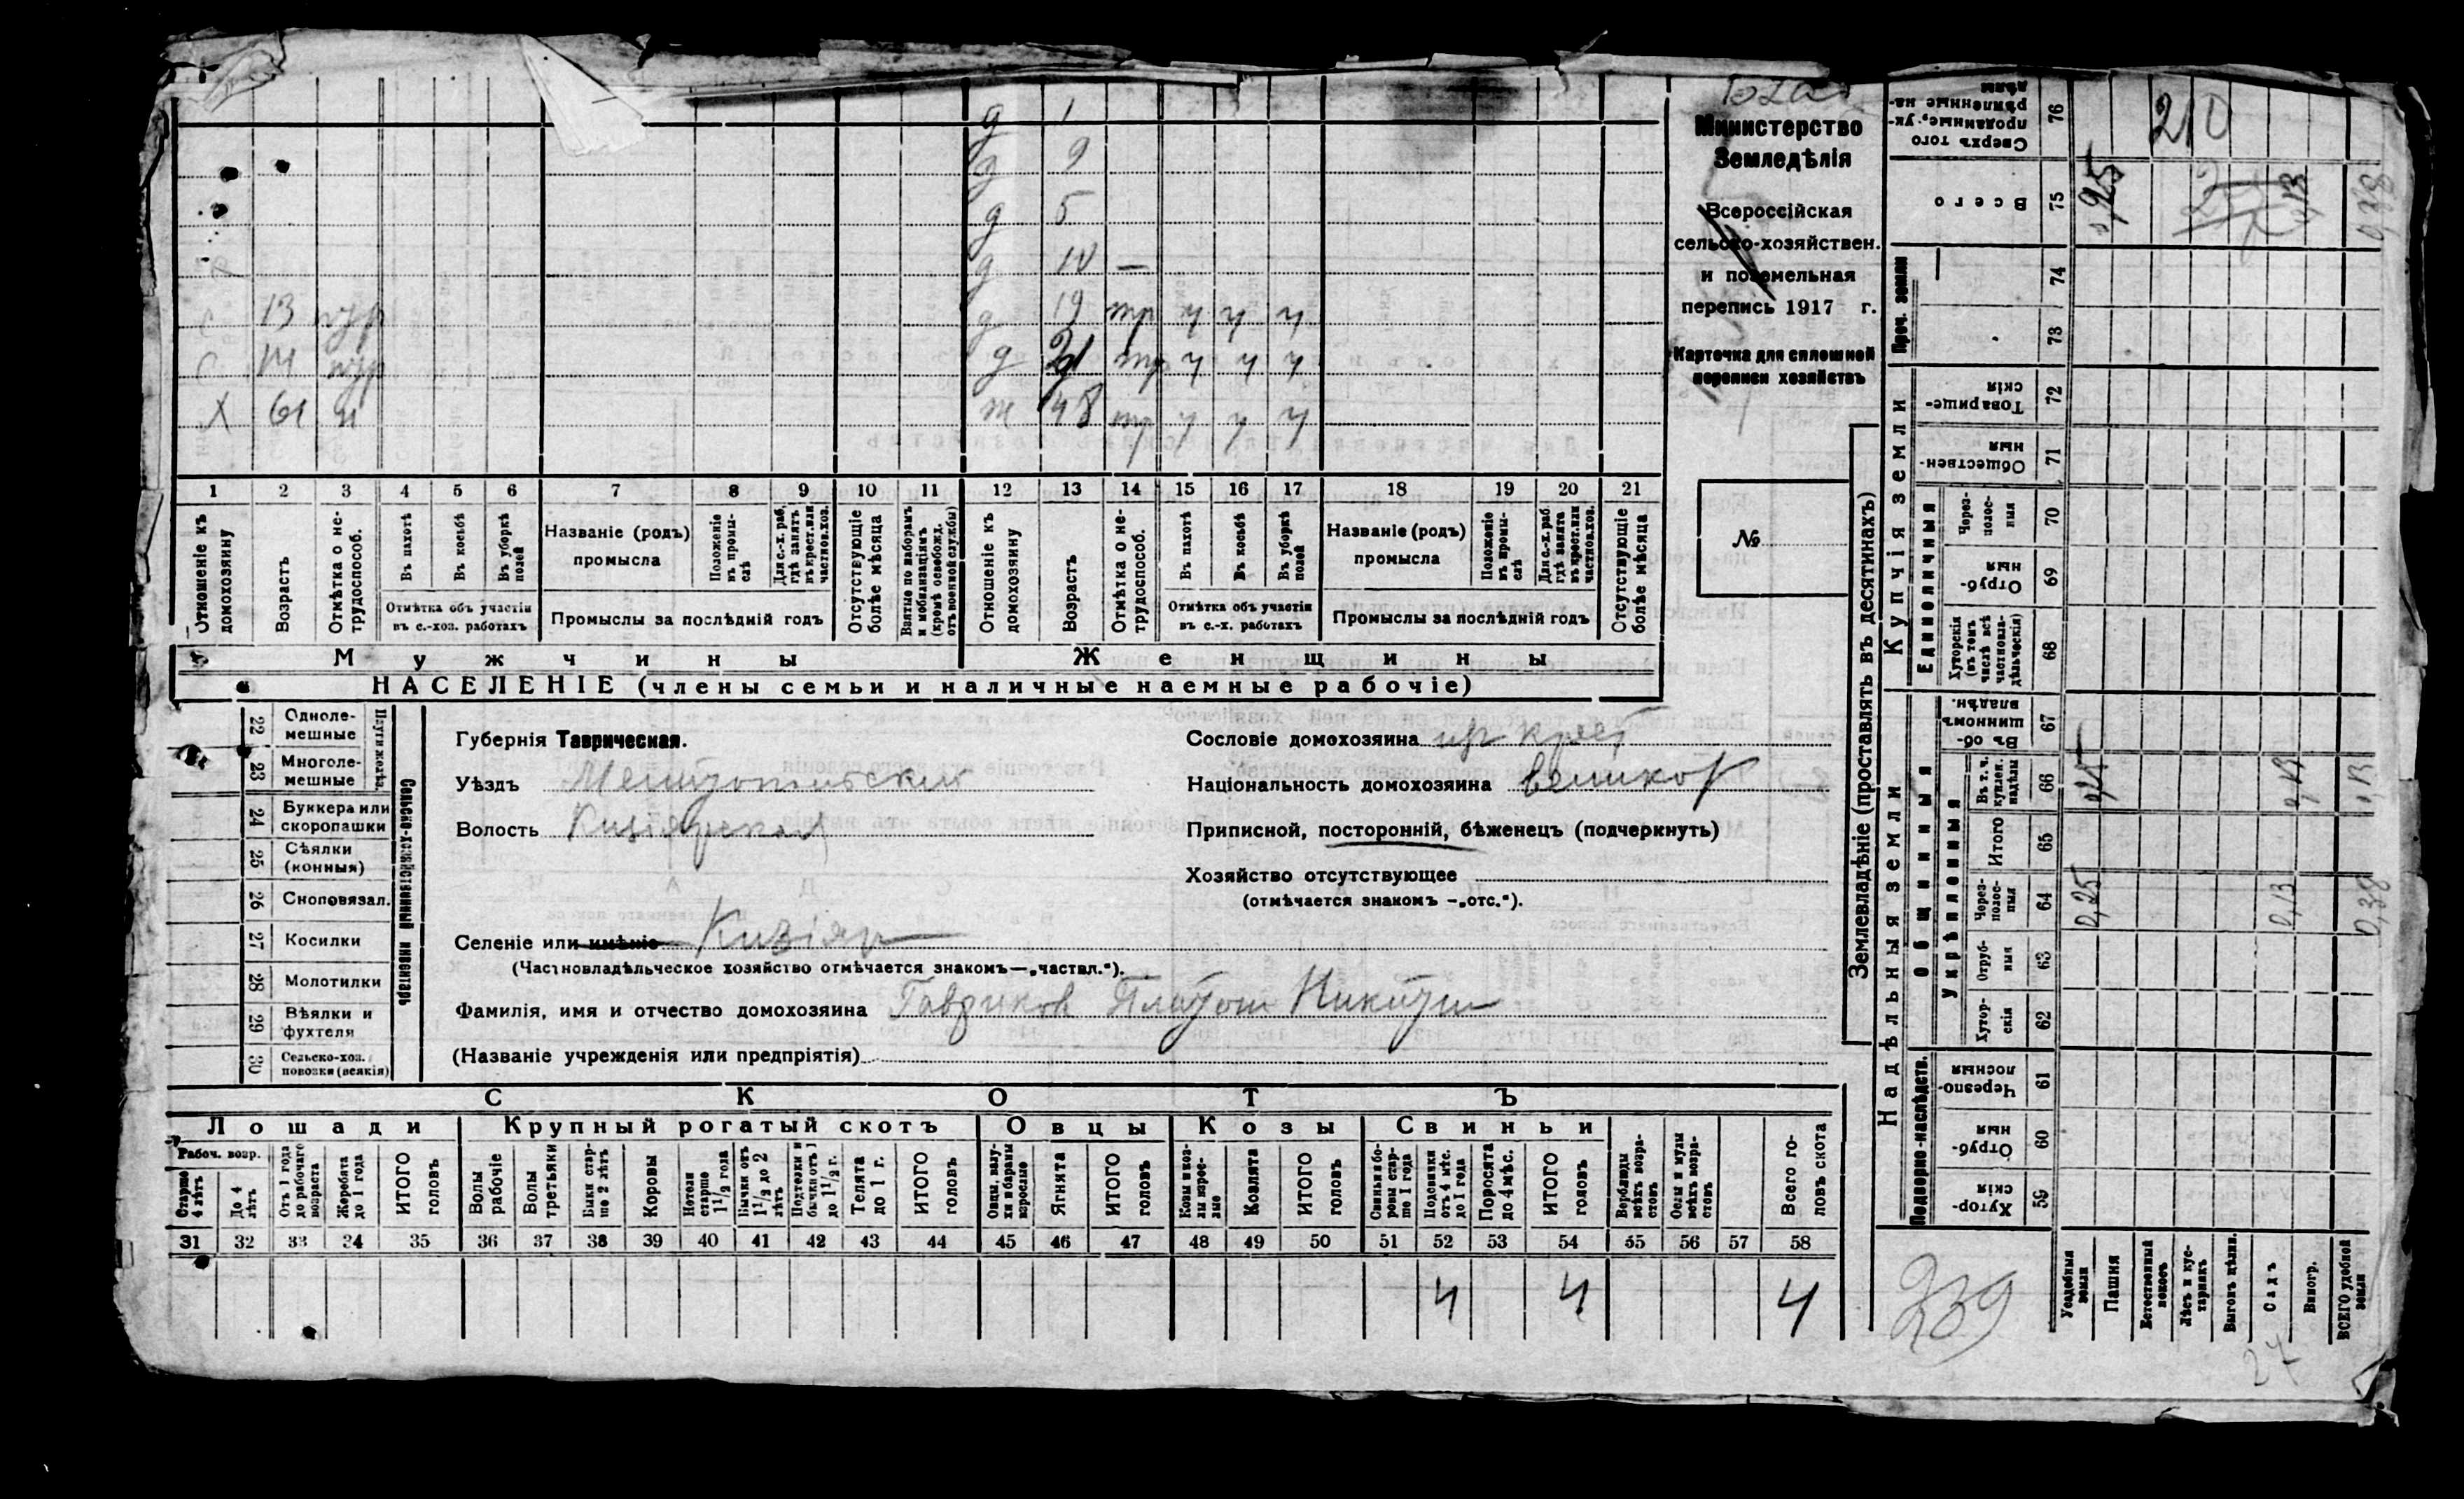 Министерство
Земледѣлія
Всероссійская
сельско-хозяйствен.
и поземельная
перепись 1917 г.
Карточка для сплошной
переписи хозяйствъ
№
д 1
д 9
д 5
д 10 —
13 д 19 тр ч ч ч
14 д 21 тр ч ч ч
Х 61 ж 48 тр ч ч ч
1 2 3 4 5 6 7 8 9 10 11 12 13 14 15 16 17 18 19 20 21
Отношеніе къ домохозяину
Возрастъ
Отмѣтка о нетрудоспособ.
Въ пахотѣ
Въ косьбѣ
Въ уборкѣ полей
Отмѣтка объ участіи въ с.-хоз. работахъ
Названіе (родъ) промысла
Положеніе въ промыслѣ
Для с.-х. раб. гдѣ занятъ въ крест. или частнов. хоз.
Промыслы за послѣдній годъ
Отсутствующіе болѣе мѣсяца
Взятые по наборамъ и мобилизаціямъ (кромѣ освобожд. отъ военной службы)
Отношеніе къ домохозяину
Возрастъ
Отмѣтка о нетрудоспособ.
Въ пахотѣ
Въ косьбѣ
Въ уборкѣ полей
Отмѣтка объ участіи въ с.-х. работахъ
Названіе (родъ) промысла
Положеніе въ промыслѣ
Для с.-х. раб. гдѣ занята въ крест. или частнов. хоз.
Промыслы за послѣдній годъ
Отсутствующіе болѣе мѣсяца
Мужчины Женщины
НАСЕЛЕНІЕ (члены семьи и наличные наемные рабочіе)
Сельско-хозяйственный инвентарь
22 Однолемешные
23 Многолемешные
24 Буккера или скоропашки
25 Сѣялки (конныя)
26 Сноповязал.
27 Косилки
28 Молотилки
29 Вѣялки и фухтеля
30 Сельско-хоз. повозки (всякія)
Губернія Таврическая.
Уѣздъ Мелитопольский
Волость Кизіярская
Селеніе или имѣніе Кизіяр
(Частновладѣльческое хозяйство отмѣчается знакомъ—„частвл.“).
Фамилія, имя и отчество домохозяина Гавриков Платон Никит
(Названіе учрежденія или предпріятія)
Сословіе домохозяина крест
Національность домохозяина великор
Приписной, посторонній, бѣженецъ (подчеркнуть)
Хозяйство отсутствующее
(отмѣчается знакомъ —„отс.“).
СКОТЪ
Лошади Крупный рогатый скотъ Овцы Козы Свиньи
Рабоч. возр.
Старше 4 лѣтъ
До 4 лѣтъ
Отъ 1 года до рабочаго возраста
Жеребята до 1 года
ИТОГО головъ
Волы рабочіе
Волы третьяки
Быки старше 2 лѣтъ
Коровы
Нетели старше 1 1/2 года
Бычки отъ 1 1/2 до 2 лѣтъ
Подтелки и бычки отъ 1 до 1 1/2 г.
Телята до 1 г.
ИТОГО головъ
Овцы, валухи и бараны взрослые
Ягнята
ИТОГО головъ
Козы и козлы взрослые
Козлята
ИТОГО головъ
Свиньи и боровы старше 1 года
Подсвинки отъ 4 мѣс. до 1 года
Поросята до 4 мѣс.
ИТОГО головъ
Верблюды всѣхъ возрастовъ
Ослы и мулы всѣхъ возрастовъ
Всего головъ скота
31 32 33 34 35 36 37 38 39 40 41 42 43 44 45 46 47 48 49 50 51 52 53 54 55 56 57 58
4 4 4
Землевладѣніе (проставлять въ десятинахъ)
Надѣльныя земли Купчія земли Проч. земли
Подворно-наслѣдств.
Общинныя
Укрѣпленныя
Единоличныя
59 Хуторскія
60 Отрубныя
61 Черезполосныя
62 Хуторскія
63 Отрубныя
64 Черезполосныя
65 Итого
66 Въ т. ч. куплен. надѣлы
67 Въ общинномъ владѣн.
68 Хуторскія (въ томъ числѣ всѣ частновладѣльческія)
69 Отрубныя
70 Черезполосныя
71 Общественныя
72 Товарищескія
73
74
75 Всего
76 Сверхъ того проданные, укрѣпленные надѣлы
Усадебныя земли
Пашня
Естественный покосъ
Лѣсъ и кустарникъ
Выгонъ цѣлин.
Садъ
Виногр.
ВСЕГО удобной земли
0,25 0,13 0,38
210
239